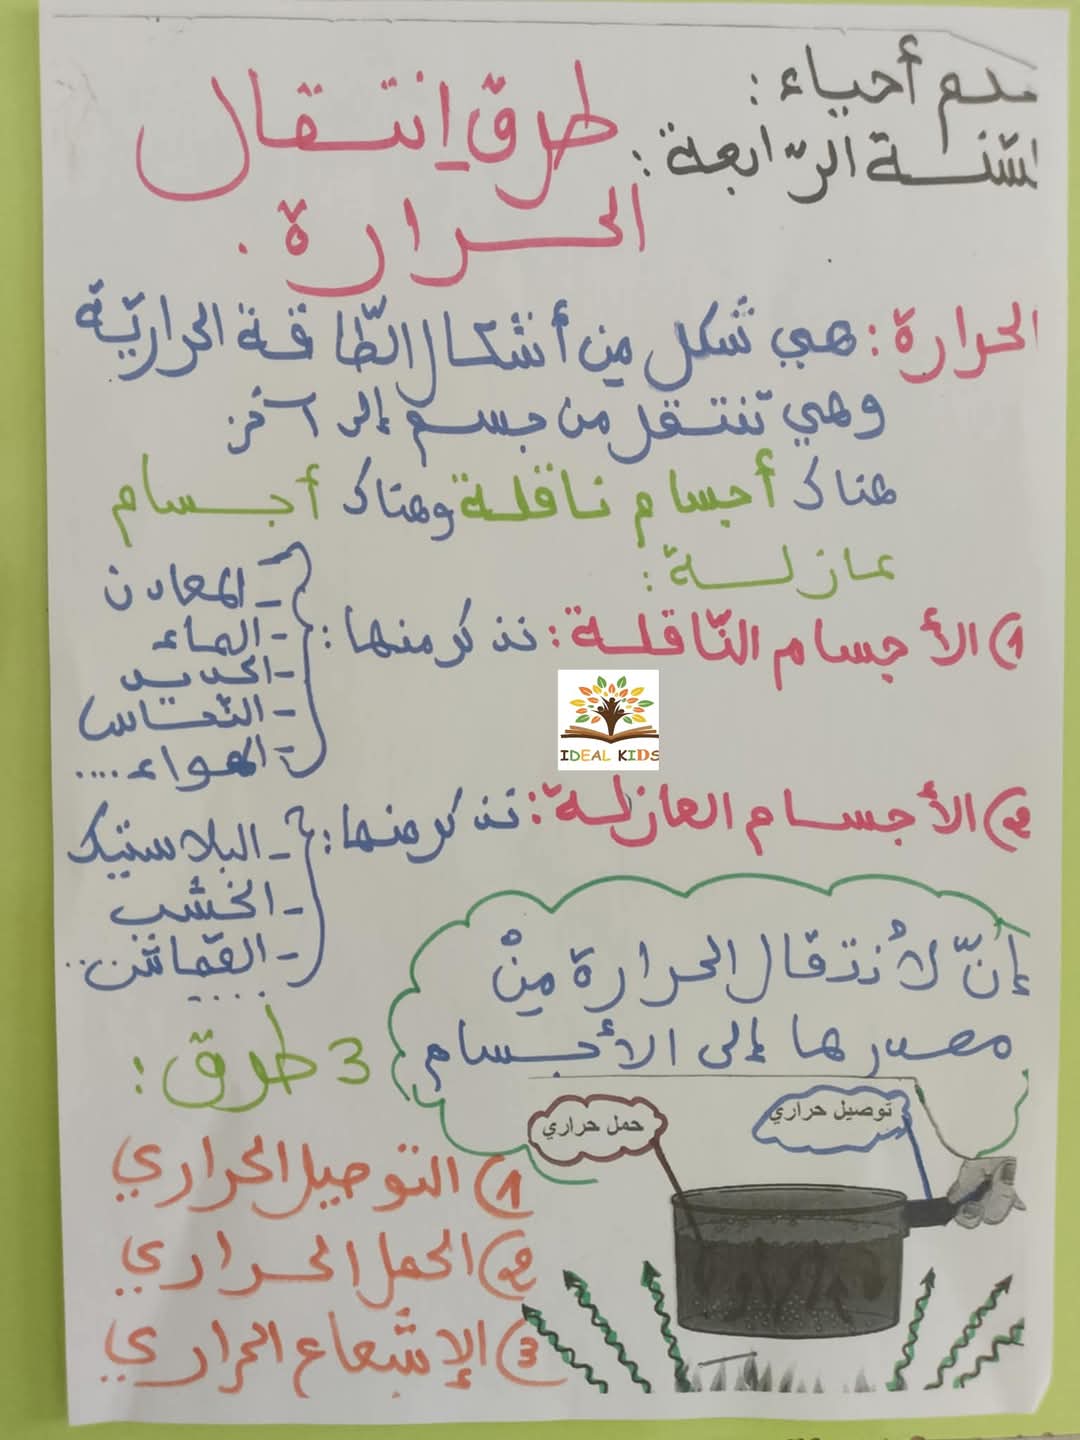 علم أحياء:
السّنة الرّابعة:
طرق إنتقال
الحرارة.
الحرارة: هي شكل من أشكال الطّاقة الحراريّة
وهي تنتقل من جسم إلى آخر.
هناك أجسام ناقلة وهناك أجسام
عازلة:
1) الأجسام النّاقلة: نذكر منها:
- المعادن
- الماء
- الحديد
- النّحاس
- الهواء....
IDEAL KIDS
2) الأجسام العازلة: نذكر منها:
- البلاستيك
- الخشب
- القماش..
....
إنّ لانتقال الحرارة مِنْ
مصدرها إلى الأجسام
3 طرق:
1) التوصيل الحراري
2) الحمل الحراري
3) الإشعاع الحراري
توصيل حراري
حمل حراري